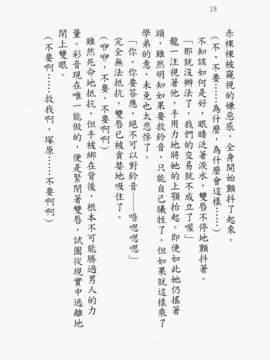 28
赤裸裸被窺視的嫌惡感,全身開始顫抖了起來。
(不、不要……為什麼,為什麼會這樣……)
不知該如何是好,眼睛泛著淚水,雙唇不停地顫抖著。
「那就沒辦法了,我們的交易就不成立了喔」
龍一注視著他,手用力地將她的上顎抬起。即便如此她仍搖著
頭,雖然明知如果要救鈴音,只能自己犧牲了。但如果就這樣乘了
學弟的意,未免也太悲慘了。
「你、你要答應,絕不可以對鈴音——唔嗯嗯嗯」
完全無法抵抗,雙唇已被貪婪地吸住了。
(咿咿,不要,不要啊啊)
雖然死命地抵抗,但手被綁在背後,根本不可能勝過男人的力
量。彩音現在唯一能做的,便是緊閉著雙唇,試圖從現實中逃離地
閉上雙眼。
(不要啊……救我啊,塚原……不要啊啊)